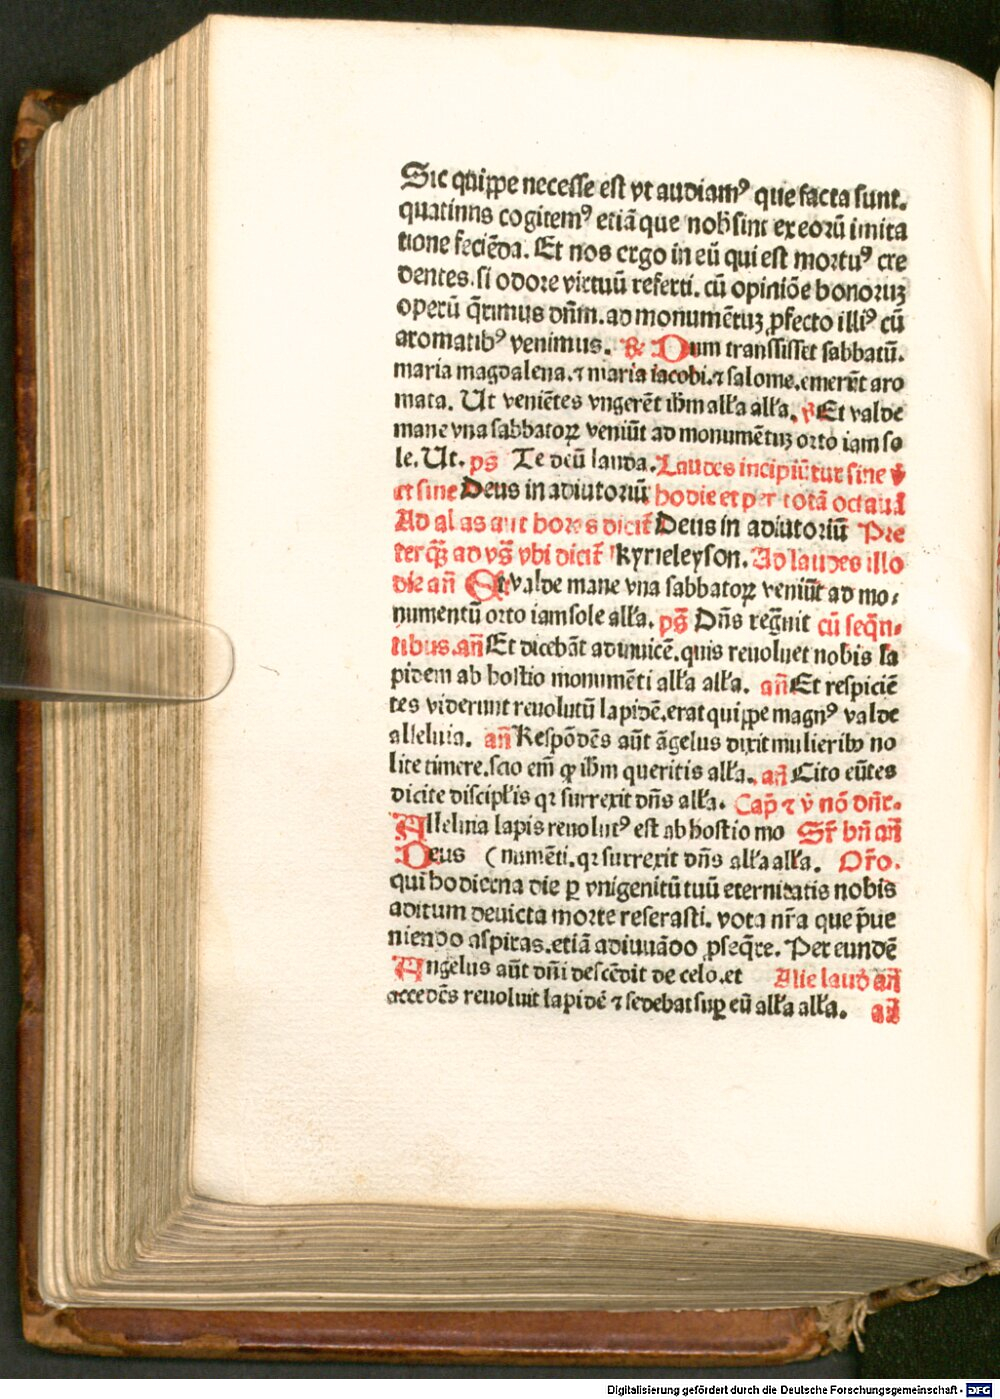 Sic quippe necesse est vt audiamꝰ que facta sunt.
quatinus cogitemꝰ etiā que nob̄ sint ex eorū imita
tione faciēda. Et nos ergo in eū qui est mortuꝰ cre
dentes. si odore virtutū referti. cū opiniōe bonoruꝫ
operū q̄rimus dn̄m. ad monumētuꝫ ꝓfecto illiꝰ cū
aromatibꝰ venimus. ℟ Dum transisset sabbatū.
maria magdalena. ⁊ maria iacobi. ⁊ salome. emerūt aro
mata. Ut veniētes vngerēt ihm̄ alľa alľa. ℣ Et valde
mane vna sabbatoꝝ veniūt ad monumētuꝫ orto iam so
le. Ut. ps̄ Te deū lauda. Laudes incipiūtur sine ℣
et sine Deus in adiutoriū hodie et per totā octauā
Ad alias aut horas dicit̄ Deus in adiutoriū Pre
terq̄ꝫ ad vs̄ vbi dicit̄ Kyrieleyson. Ad laudes illo
die an̄ Et valde mane vna sabbatoꝝ veniūt ad mo⸗
numentū orto iam sole alľa. ps̄ Dn̄s regnuit cū seq̄n⸗
tibus. an̄ Et dicebāt adinuicē. quis reuoluet nobis la
pidem ab hostio monumēti alľa alľa. an̄ Et respiciē
tes viderunt reuolutū lapidē. erat quippe magnꝰ valde
alleluia. an̄ Respōdēs aūt āgelus dixit mulieribꝰ no
lite timere. scio em̄ ꝙ ihm̄ queritis alľa. an̄ Cito eūtes
dicite discipľis qꝛ surrexit dn̄s alľa. Cap̄ ⁊ ẏ nō dn̄r.
Alleluia lapis reuolutꝰ est ab hostio mo Sr̄ bn̄ an̄
Deus ( numēti. qꝛ surrexit dn̄s alľa alľa. Or̄o.
qui hodierna die ꝑ vnigenitū tuū eternitatis nobis
aditum deuicta morte reserasti. vota nr̄a que p̄ue
niendo aspiras. etiā adiuuādo ꝓseq̄re. Per eundē
Angelus aūt dn̄i descēdit de celo. et Alie laud̄ an̄
accedēs reuoluit lapidē ⁊ sedebat suꝑ eū alľa alľa. an̄
Digitalisierung gefördert durch die Deutsche Forschungsgemeinschaft - DFG